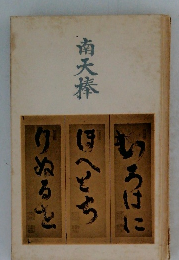 南天棒
いろはに
ほへとち
りぬるを